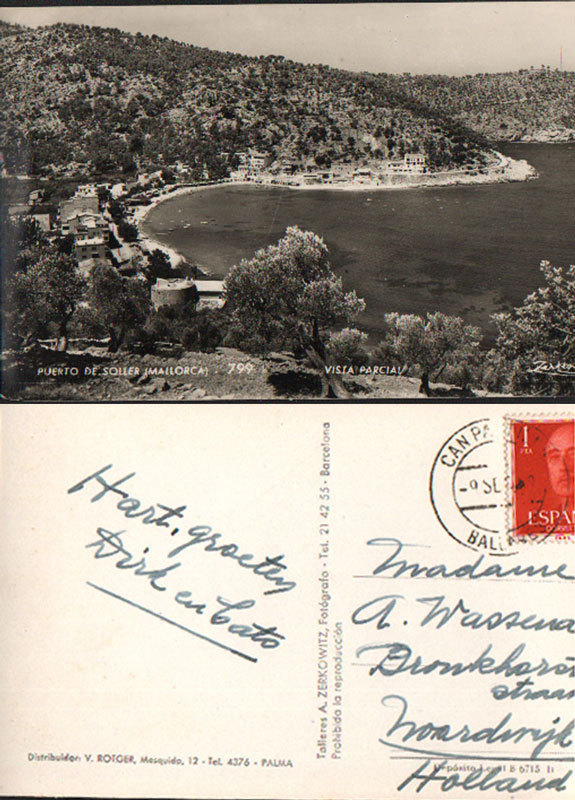 PUERTO DE SOLLER (MALLORCA) . 799
VISTA PARCIAL
Hart. groeten
Dirk en Cato
Distribuidor: V. ROTGER, Mosquido, 12 - Tel. 4376 - PALMA
Talleres A. ZERKOWITZ, Fotógrafo - Tel. 21 42 55 - Barcelona
Prohibida la reproducción
CAN PA
-9 SE
BALE
1
PTA
ESPAÑ
CORREOS
Madame
A. Wassena
Bronkhorst
straa
Noordwijk
Depósito Legal B 6715
Holland